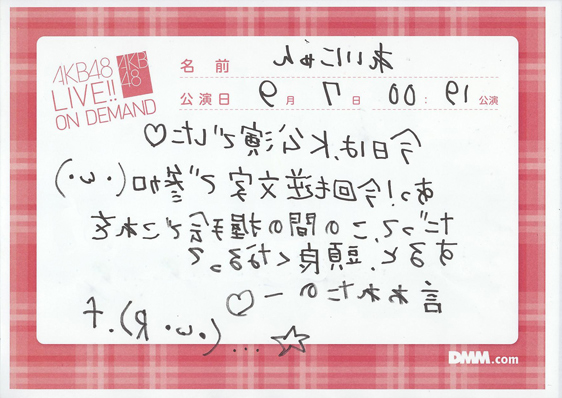 AKB48
LIVE!!
ON DEMAND
AKB
48
名前 れいにゃん
公演日 9月 7日 00:19公演
今日は、K公演でした♡
あっ!今回も逆文字で参加(・ω・)
だって、この間の握手会でこれを
すると、頭良くなるって
言われたのー♡
☆...(・ω・R).t
DMM.com